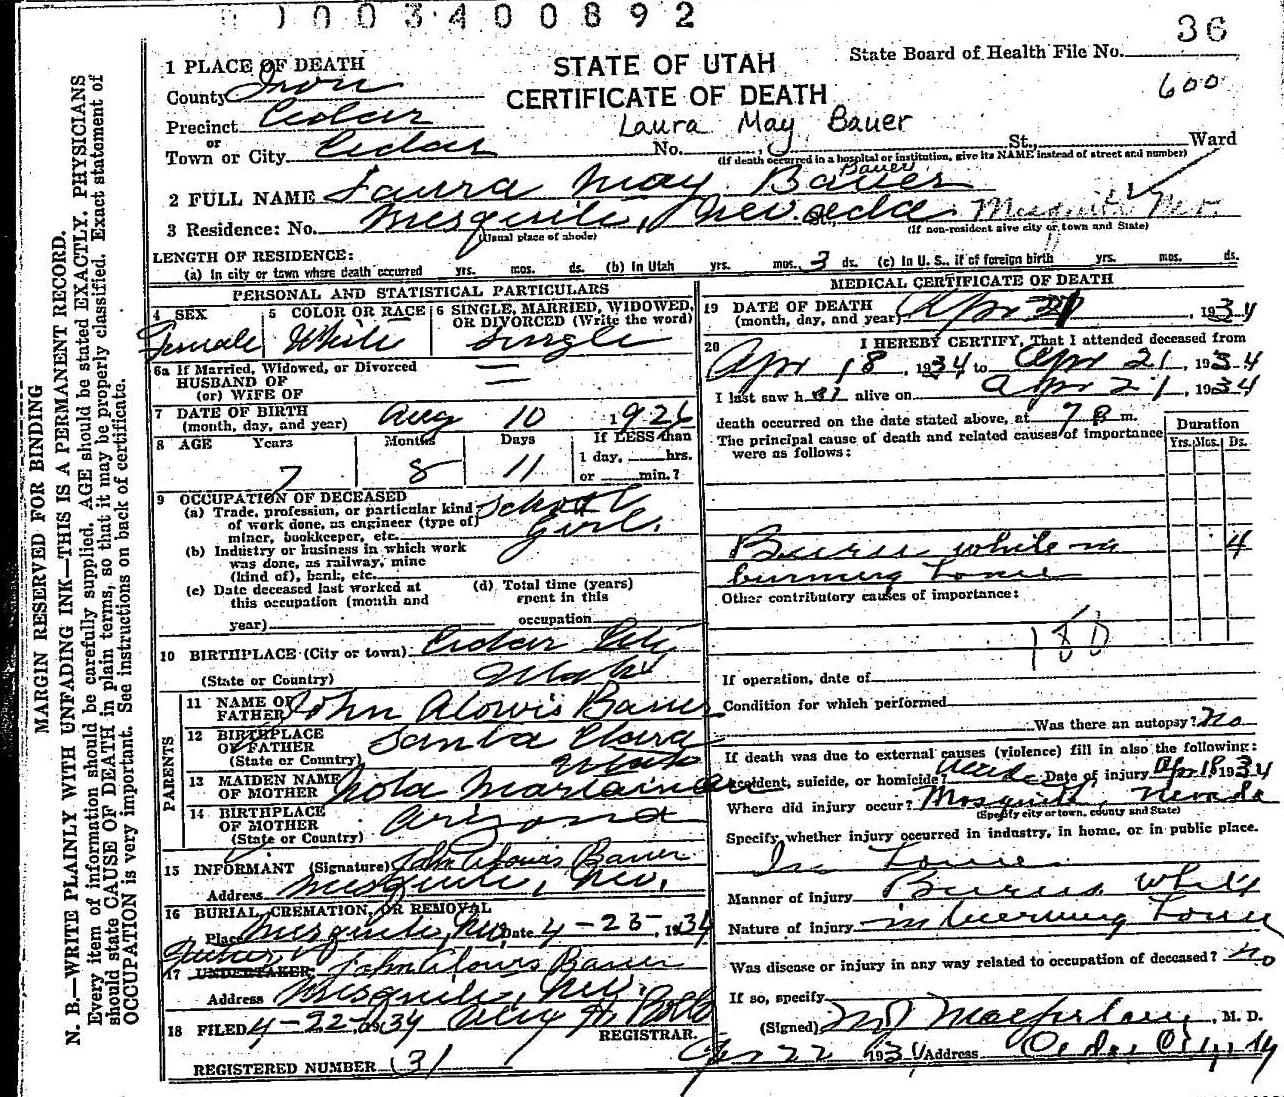 003400892
36
State Board of Health File No.
600
STATE OF UTAH
CERTIFICATE OF DEATH
Laura May Bauer
1 PLACE OF DEATH
County Iron
Precinct Cedar
or
Town or City Cedar No. St., Ward
(If death occurred in a hospital or institution, give its NAME instead of street and number)
Bauer
2 FULL NAME Laura May Bauer
3 Residence: No. Mesquite, Nevada St. Mesquite Nev.
(Usual place of abode) (If non-resident give city or town and State)
LENGTH OF RESIDENCE:
(a) In city or town where death occurred yrs. mos. ds. (b) In Utah yrs. mos. 3 ds. (c) In U. S., if of foreign birth yrs. mos. ds.
PERSONAL AND STATISTICAL PARTICULARS
4 SEX 5 COLOR OR RACE 6 SINGLE, MARRIED, WIDOWED,
OR DIVORCED (Write the word)
Female White Single
6a If Married, Widowed, or Divorced
HUSBAND OF
(or) WIFE OF
7 DATE OF BIRTH
(month, day, and year) Aug 10 1926
8 AGE Years Months Days If LESS than
1 day, hrs.
7 8 11 or min.?
9 OCCUPATION OF DECEASED
(a) Trade, profession, or particular kind
of work done, as engineer (type of)
miner, bookkeeper, etc. School Girl.
(b) Industry or business in which work
was done, as railway, mine
(kind of), bank, etc.
(c) Date deceased last worked at
this occupation (month and
year)
(d) Total time (years)
spent in this
occupation
10 BIRTHPLACE (City or town) Cedar City
(State or Country) Utah
PARENTS
11 NAME OF
FATHER John Alowis Bauer
12 BIRTHPLACE
OF FATHER Santa Clara
(State or Country) Utah
13 MAIDEN NAME
OF MOTHER Nola
14 BIRTHPLACE
OF MOTHER Arizona
(State or Country)
15 INFORMANT (Signature) John Alowis Bauer
Address Mesquite, Nev.
16 BURIAL, CREMATION, OR REMOVAL
Place Mesquite, Nev Date 4-23-, 1934
Father
17 UNDERTAKER: John Alowis Bauer
Address Mesquite, Nev.
18 FILED 4-22-1934
REGISTRAR.
REGISTERED NUMBER (31
MEDICAL CERTIFICATE OF DEATH
19 DATE OF DEATH
(month, day, and year) Apr 21, 1934
20 I HEREBY CERTIFY, That I attended deceased from
Apr 18, 1934 to Apr 21, 1934
I last saw her alive on Apr 21, 1934
death occurred on the date stated above, at 7 P m.
The principal cause of death and related causes of importance
were as follows:
Duration
Yrs. Mos. Ds.
Burns while in 4
burning house
Other contributory causes of importance:
180
If operation, date of
Condition for which performed
Was there an autopsy? No
If death was due to external causes (violence) fill in also the following:
Accident, suicide, or homicide? Date of injury Apr 18 1934
Where did injury occur? Mesquite, Nevada
(Specify city or town, county and State)
Specify whether injury occurred in industry, in home, or in public place.
In home
Manner of injury Burns while
Nature of injury in burning house
Was disease or injury in any way related to occupation of deceased? No
If so, specify
(Signed) Macfarlane, M. D.
Apr 22 1934 Address Cedar City
MARGIN RESERVED FOR BINDING
N. B.—WRITE PLAINLY WITH UNFADING INK—THIS IS A PERMANENT RECORD.
Every item of information should be carefully supplied. AGE should be stated EXACTLY. PHYSICIANS
should state CAUSE OF DEATH in plain terms, so that it may be properly classified. Exact statement of
OCCUPATION is very important. See instructions on back of certificate.